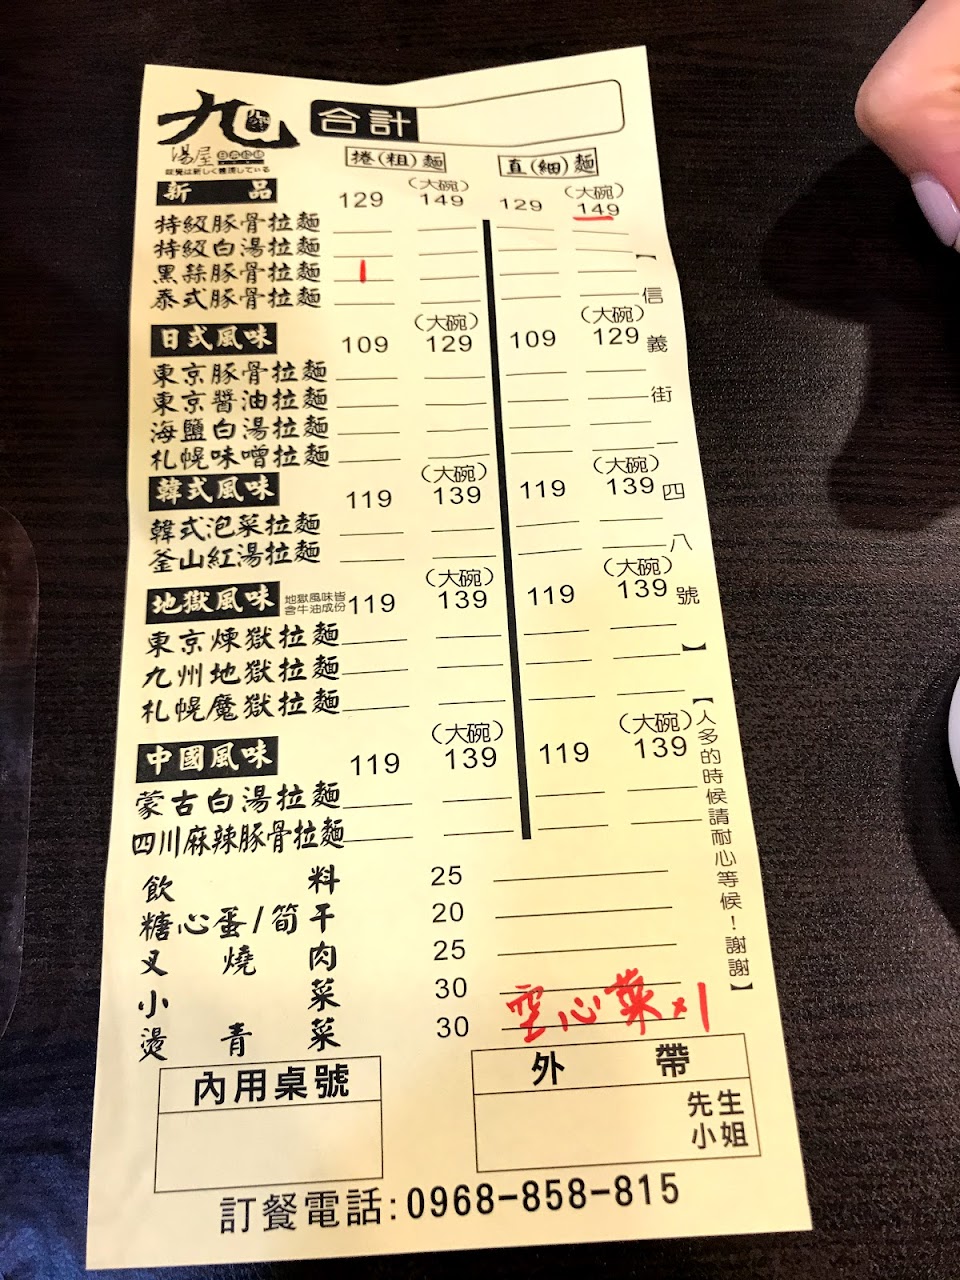 九
湯屋 日本拉麺
合計
捲(粗)麵 直(細)麵
新品 129 (大碗) 149 129 (大碗) 149
特級豚骨拉麵
特級白湯拉麵
黑蒜豚骨拉麵 1
泰式豚骨拉麵
日式風味 109 (大碗) 129 109 (大碗) 129
東京豚骨拉麵
東京醬油拉麵
海鹽白湯拉麵
札幌味噌拉麵
韓式風味 119 (大碗) 139 119 (大碗) 139
韓式泡菜拉麵
釜山紅湯拉麵
地獄風味 地獄風味皆含牛油成份 119 (大碗) 139 119 (大碗) 139
東京煉獄拉麵
九州地獄拉麵
札幌魔獄拉麵
中國風味 119 (大碗) 139 119 (大碗) 139
蒙古白湯拉麵
四川麻辣豚骨拉麵
飲料 25
糖心蛋/筍干 20
叉燒肉 25
小菜 30
燙青菜 30 空心菜x1
【信義街一四八號】
【人多的時候請耐心等候!謝謝】
內用桌號
外帶
先生
小姐
訂餐電話:0968-858-815